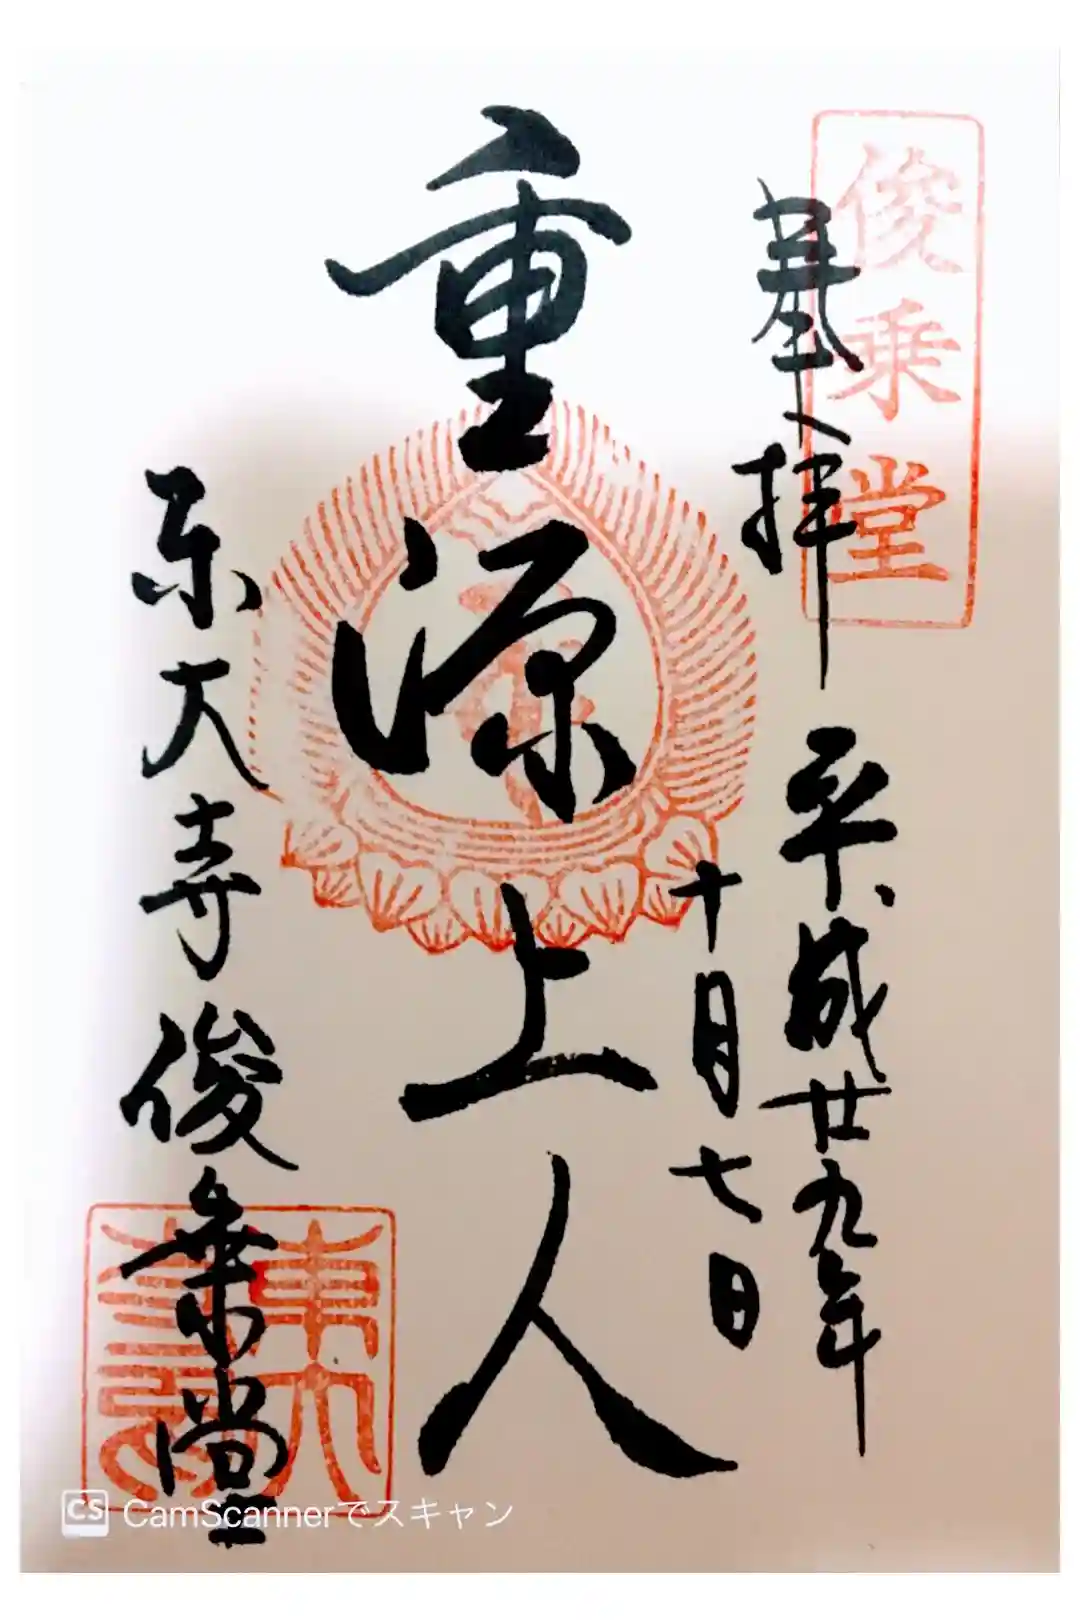 俊乗堂
奉拝
平成廿九年
十月七日
重源上人
東大寺俊乗堂
東大
CS CamScannerでスキャン